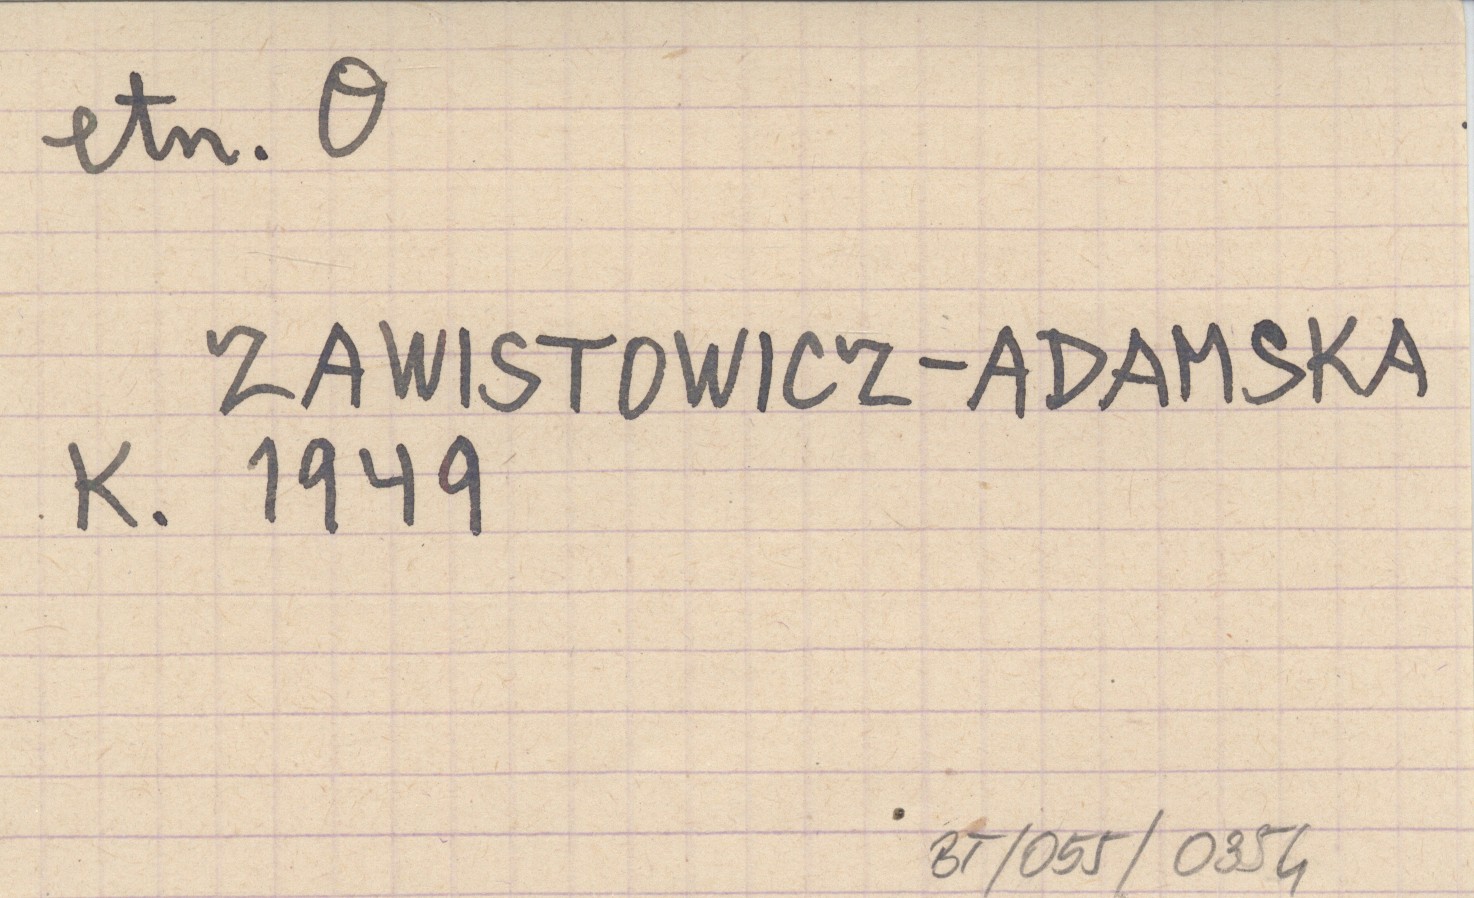 etn. O
ZAWISTOWICZ-ADAMSKA
K. 1949
BT/055/0354